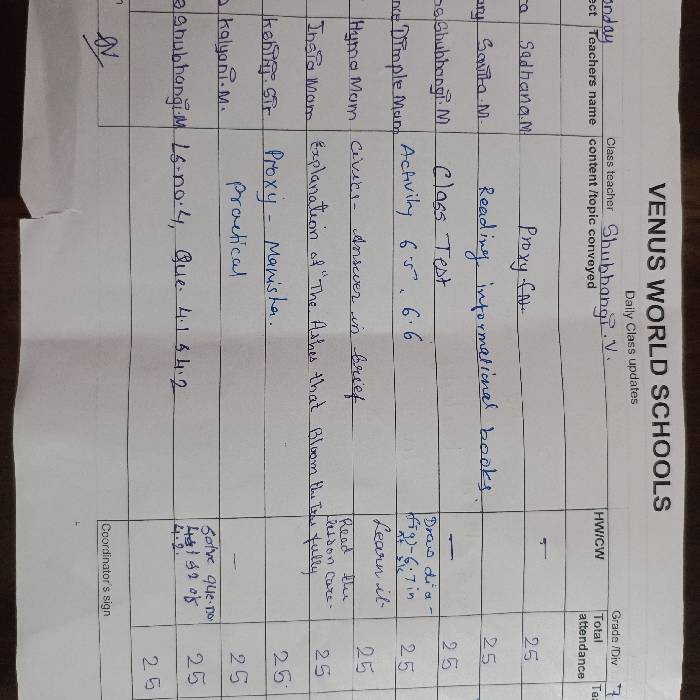 VENUS WORLD SCHOOLS
Daily Class updates
onday Class teacher Shubhangi.V. Grade /Div
ect Teachers name content /topic conveyed HW/CW Total attendance
Sadhana.M Proxy — 25
ary Savita.M. Reading informational books. 25
Shubhangi.M Class Test — 25
Dimple Mam Activity 6.5, 6.6 Draw dia- 6.7 in 25
Hyma Mam Civics- Answer in brief Learn it 25
Insia Mam Explanation of "The Ashes that Bloom the Trees fully Read the lesson care- 25
Sir Proxy - Manisha. 25.
Kalyani.M. practical — 25
Shubhangi.M Ls.no.4, Que. 4.1 & 4.2 Solve que.no 4.2. 25
25
Coordinator's sign